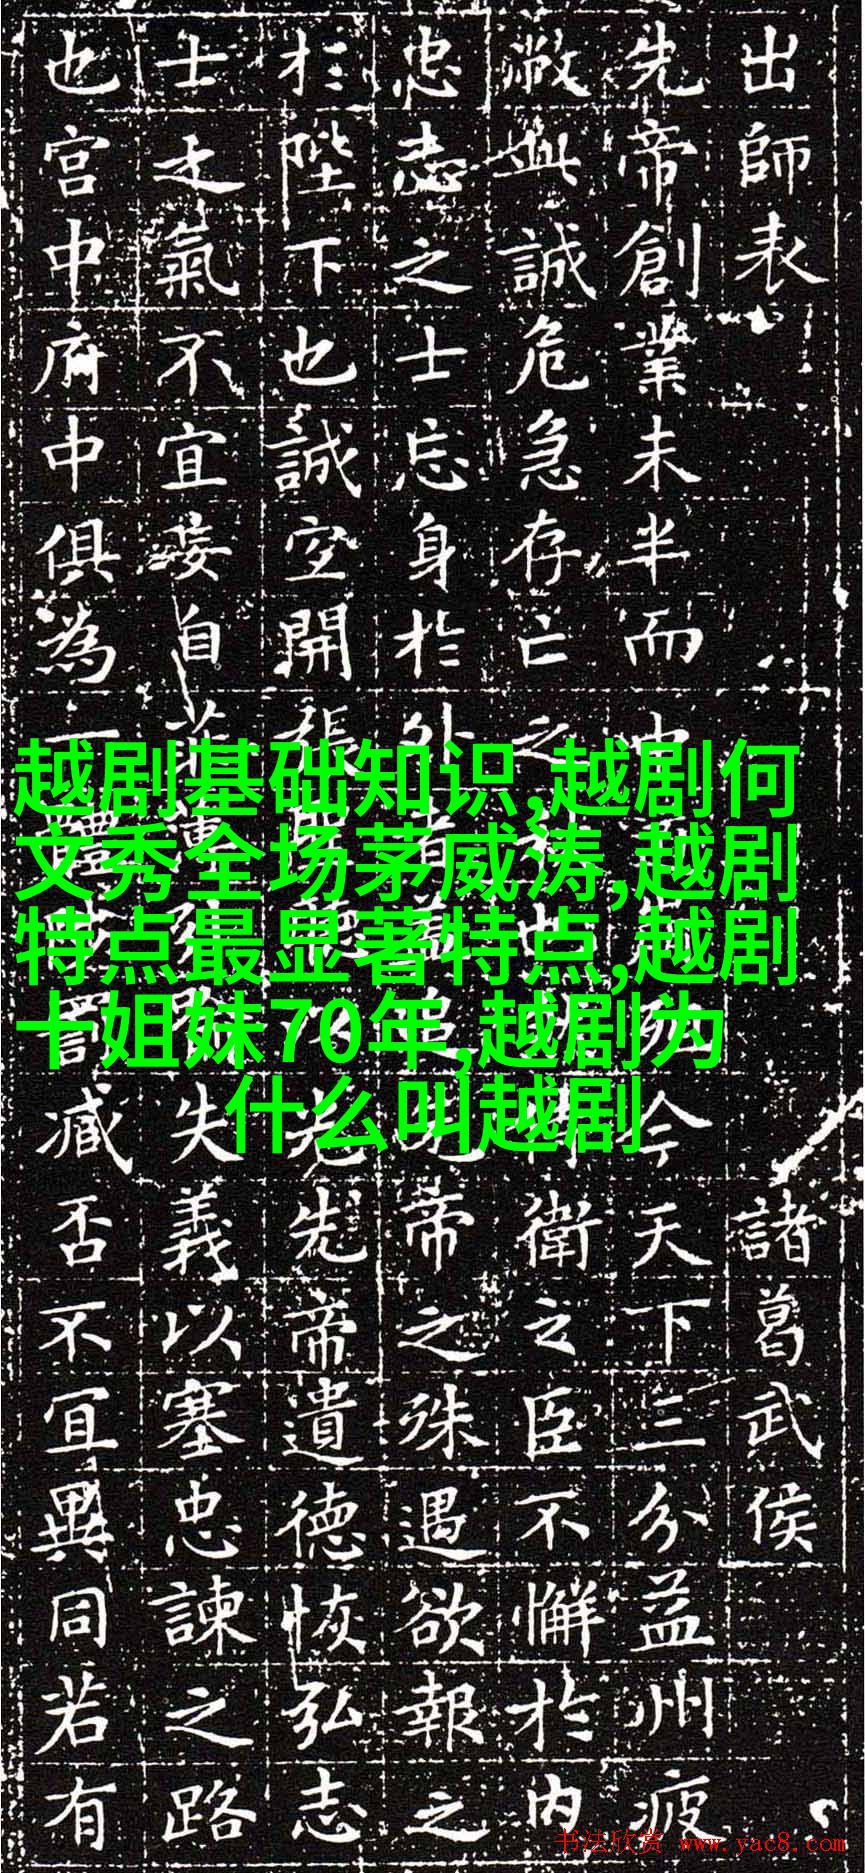 出師表 諸葛武侯
先帝創業未半而中今天下三分益州疲
敝此誠危急存亡之衛之臣不懈於内
忠志之士忘身於外者追先帝之殊遇欲報之
於陛下也誠空開張以光先帝遺德恢弘志
士之氣不宜妄自菲薄失義以塞忠諫之路
也宮中府中俱為一體罰臧否不宜異同若有
越剧基础知识,越剧何
文秀全场茅威涛,越剧
特点最显著特点,越剧
十姐妹70年,越剧为
什么叫越剧
书法欣赏 www.yac8.com